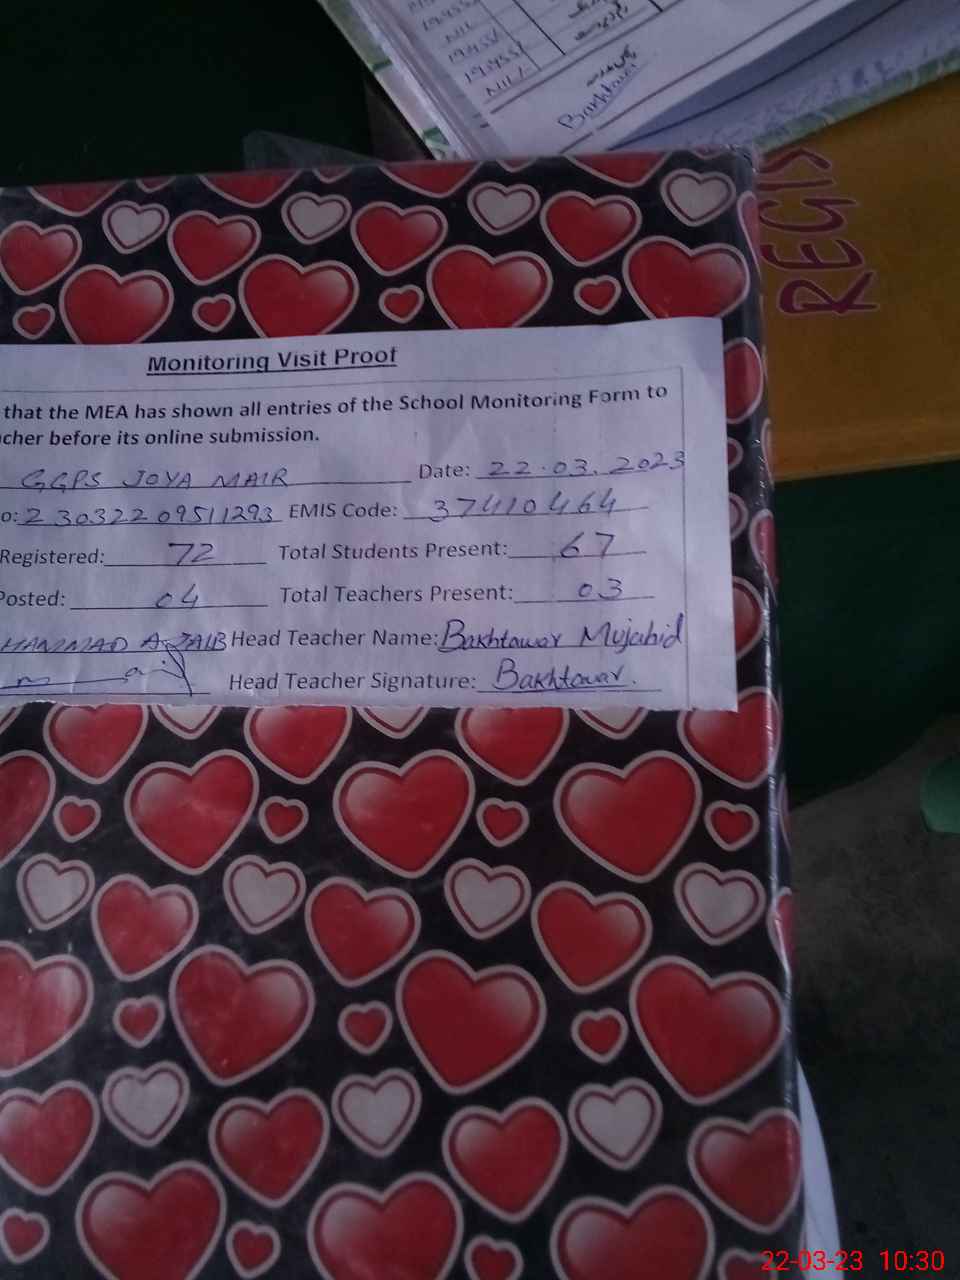 19455/
NIL
19455/
19455/
NIL/-
Bakhtawar
REGIS
Monitoring Visit Proof
that the MEA has shown all entries of the School Monitoring Form to
cher before its online submission.
GGPS JOYA MAIR Date: 22.03.2023
o: 23032209511293 EMIS Code: 37410464
Registered: 72 Total Students Present: 67
Posted: 04 Total Teachers Present: 03
HAMMAD AJAIB Head Teacher Name: Bakhtawar Mujahid
Head Teacher Signature: Bakhtawar.
22-03-23 10:30